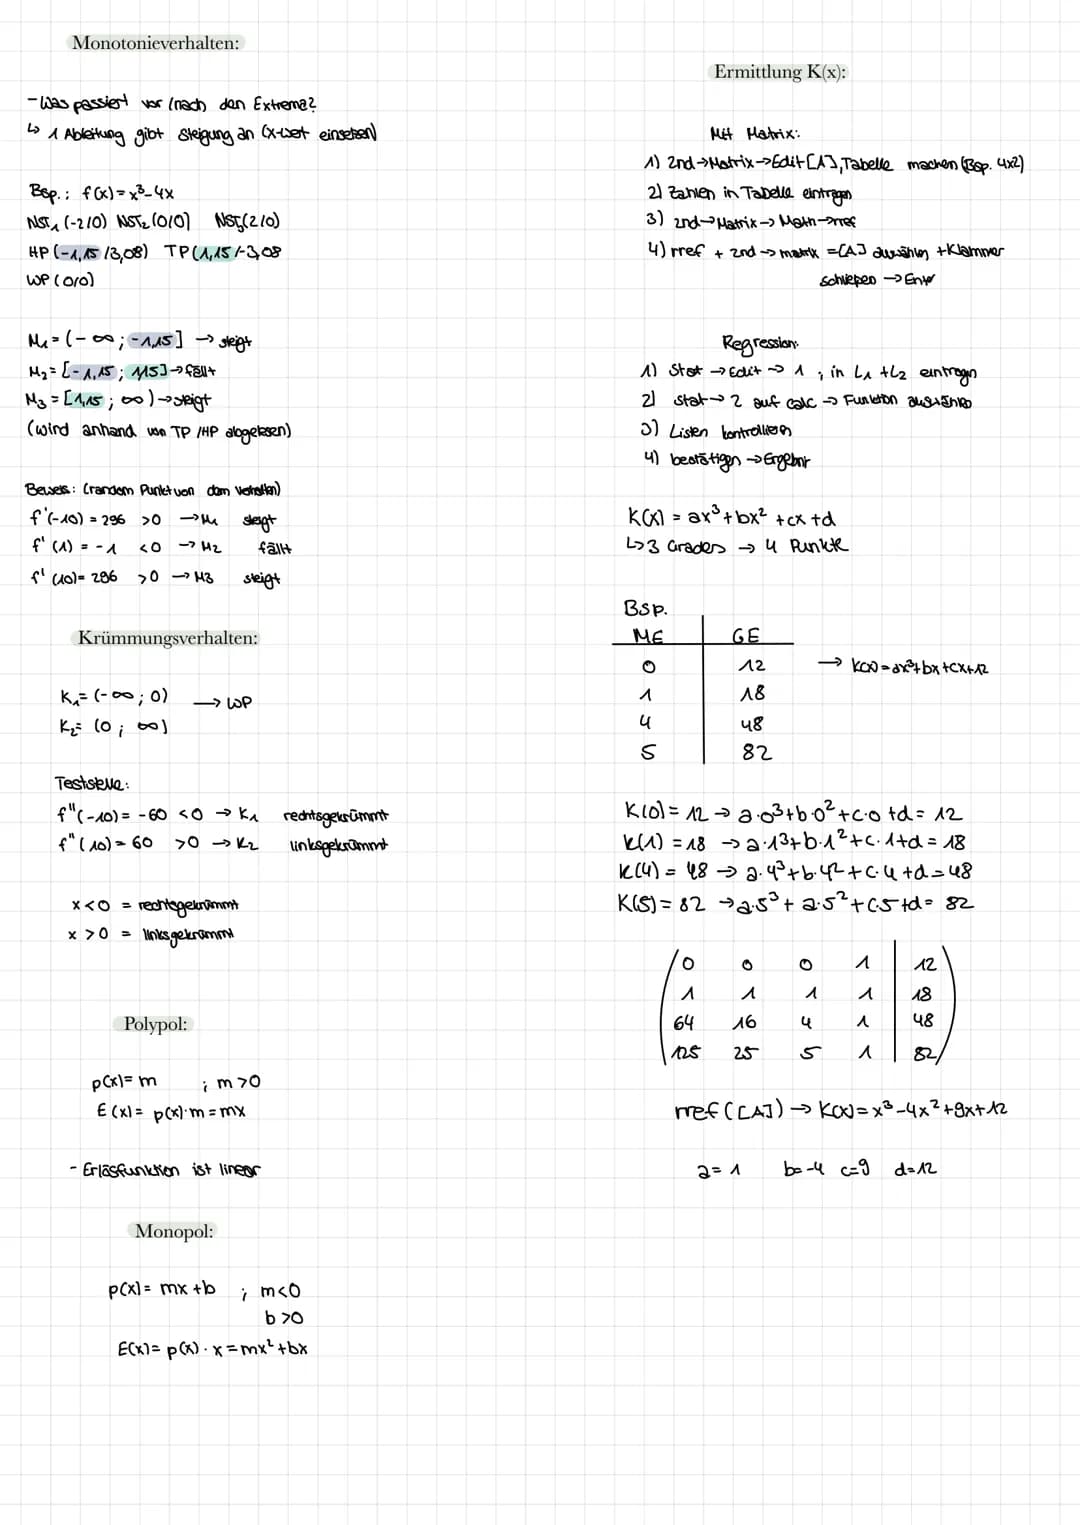 Monotonieverhalten:
- Was passiert vor / nach den Extrema?
↳ 1 Ableitung gibt Steigung an (x-Wert einsetzen)
Bsp.: f(x) = x³-4x
NST₁ (-2/0) NST₂ (0/0) NST₃(2/0)
HP (-1,15 /3,08) TP(1,15/-3,08
WP (0/0)
M₁ = (- ∞; -1,15] → steigt
M₂ = [-1,15; 1,15] → fällt
M₃ = [1,15; ∞) → steigt
(wird anhand von TP /HP abgelesen)
Beweis: (random Punkt von dem Verhalten)
f'(-10) = 296 >0 → M₁ steigt
f' (1) = -1 <0 → M2 fällt
f' (10) = 296 >0 → M3 steigt
Krümmungsverhalten:
K₁= (-∞; 0) → WP
K₂= (0; ∞)
Teststelle:
f"(-10) = -60 <0 → K₁ rechtsgekrümmt
f" (10) = 60 >0 → K₂ linksgekrümmt
x<0 = rechtsgekrümmt
x >0 = linksgekrümmt
Polypol:
p(x) = m ; m>0
E(x) = p(x)·m = mx
- Erlösfunktion ist linear
Monopol:
p(x) = mx +b ; m<0
b >0
E(x) = p(x) · x = mx² +bx
Ermittlung K(x):
Mit Matrix:
1) 2nd→Matrix→Edit[A], Tabelle machen (Bsp. 4x2)
2) Zahlen in Tabelle eintragen
3) 2nd→Matrix→Math→rref
4) rref + 2nd → matrix =[A] auswählen +Klammer
schließen → Enter
Regression:
1) Stat → Edit → 1 ; in L₁ +L2 eintragen
2) Stat→ 2 auf calc → Funktion auswählen
3) Listen kontrollieren
4) bestätigen → Ergebnis
K(x) = ax³ + bx² +cx +d
↳ 3 Grades → 4 Punkte
Bsp.
ME GE
0 12 → K(x) = ax³+bx+cx+12
1 18
4 48
5 82
K(0) = 12 → a·0³+b·0²+c·0 +d = 12
K(1) = 18 → a·1³+b·1²+c·1+d = 18
K(4) = 48 → a·4³+b·4²+c·4 +d = 48
K(5) = 82 → a·5³+ a·5²+c5+d= 82
0 0 0 1 12
1 1 1 1 18
64 16 4 1 48
125 25 5 1 82
rref ([A]) → K(x) = x³-4x²+9x+12
a = 1 b= -4 c=9 d=12